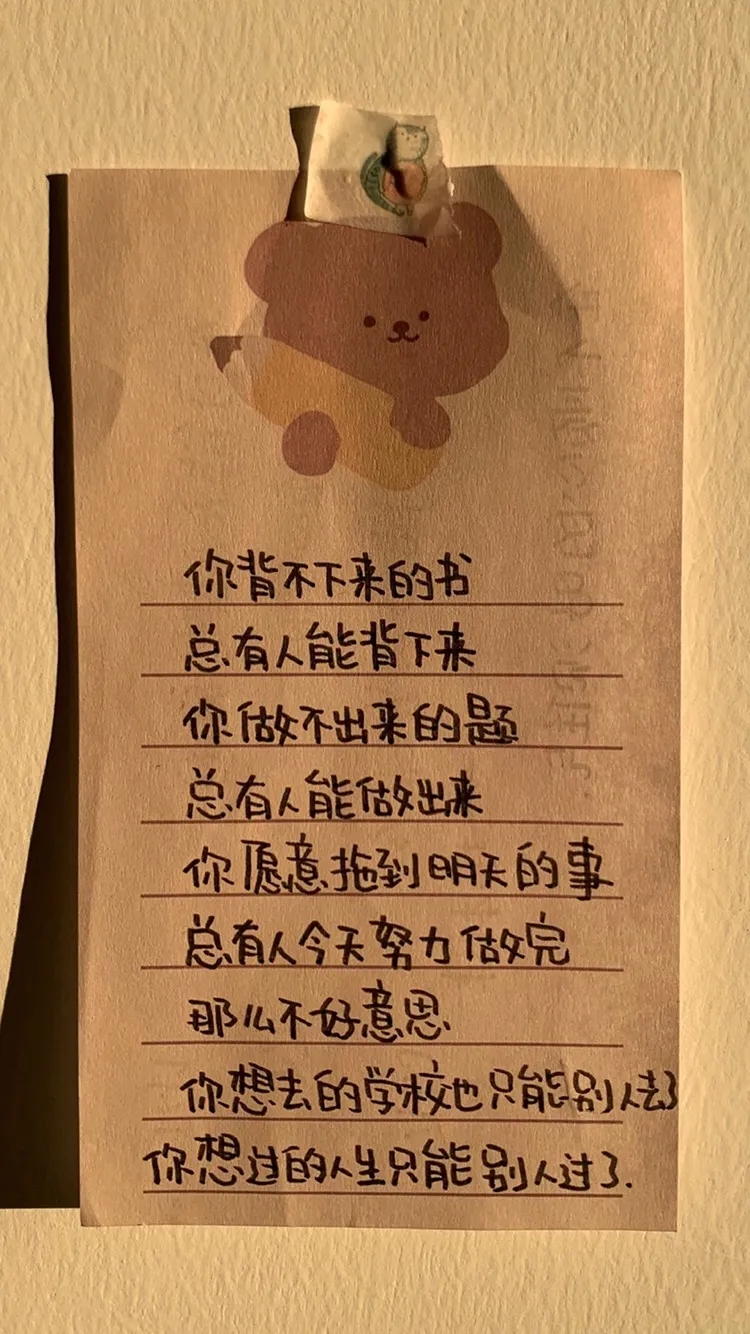 你背不下来的书
总有人能背下来
你做不出来的题
总有人能做出来
你愿意拖到明天的事
总有人今天努力做完
那么不好意思
你想去的学校也只能别人去了
你想过的人生只能别人过了.